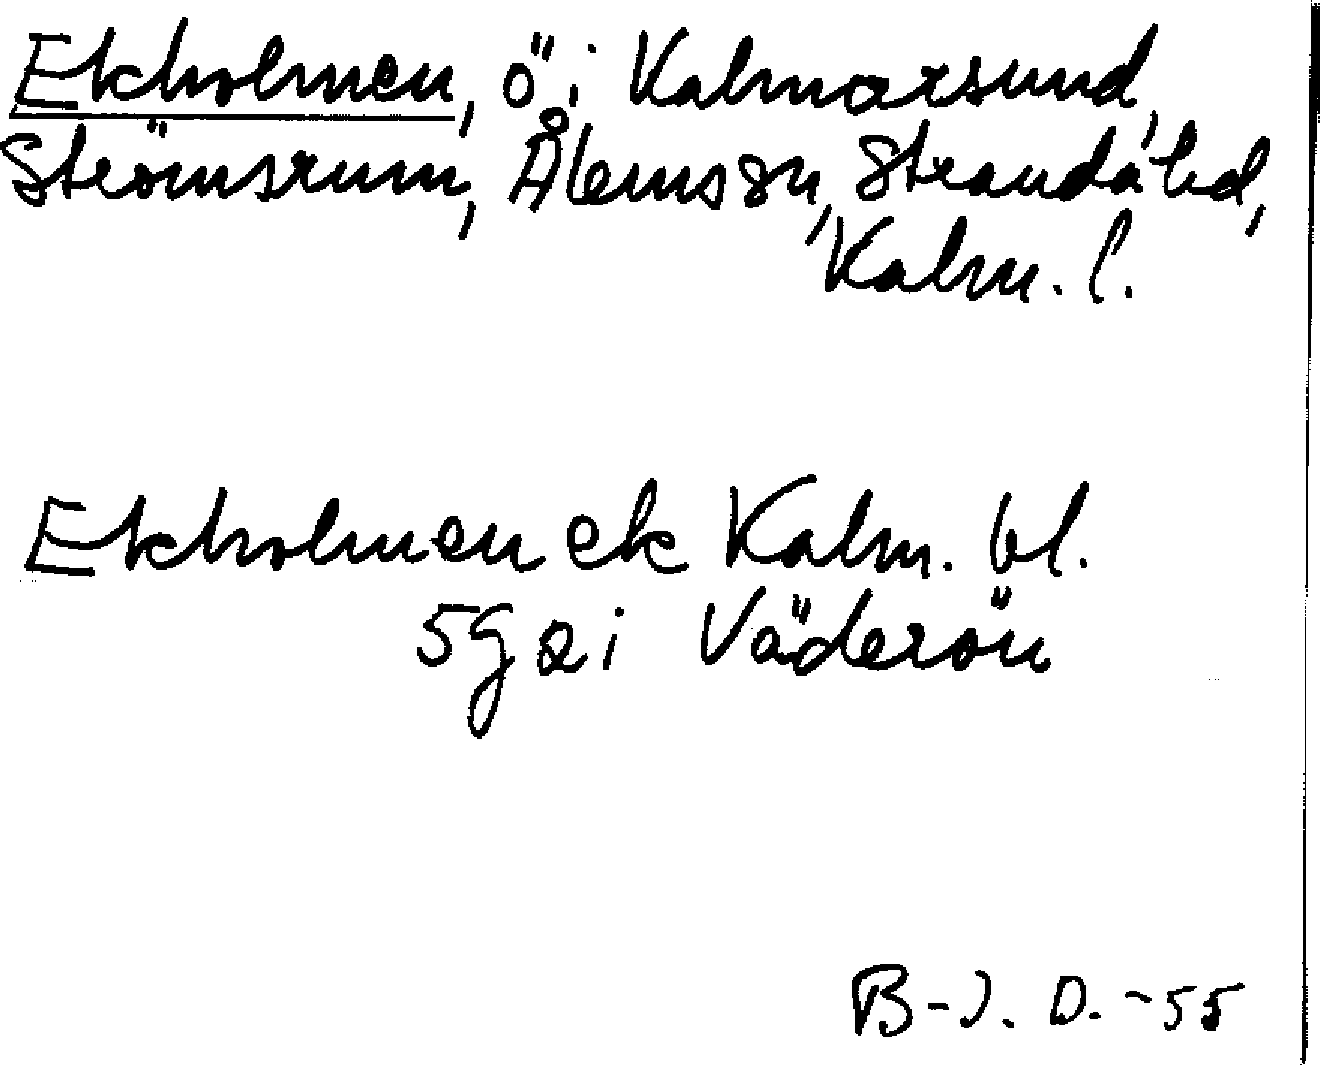 Ekholmen, ö i Kalmarsund,
Strömsrum, Ålems sn, Stranda hd,
Kalm. l.
Ekholmen ek Kalm. bl.
5G 2 i Väderön
B-J. D. -55